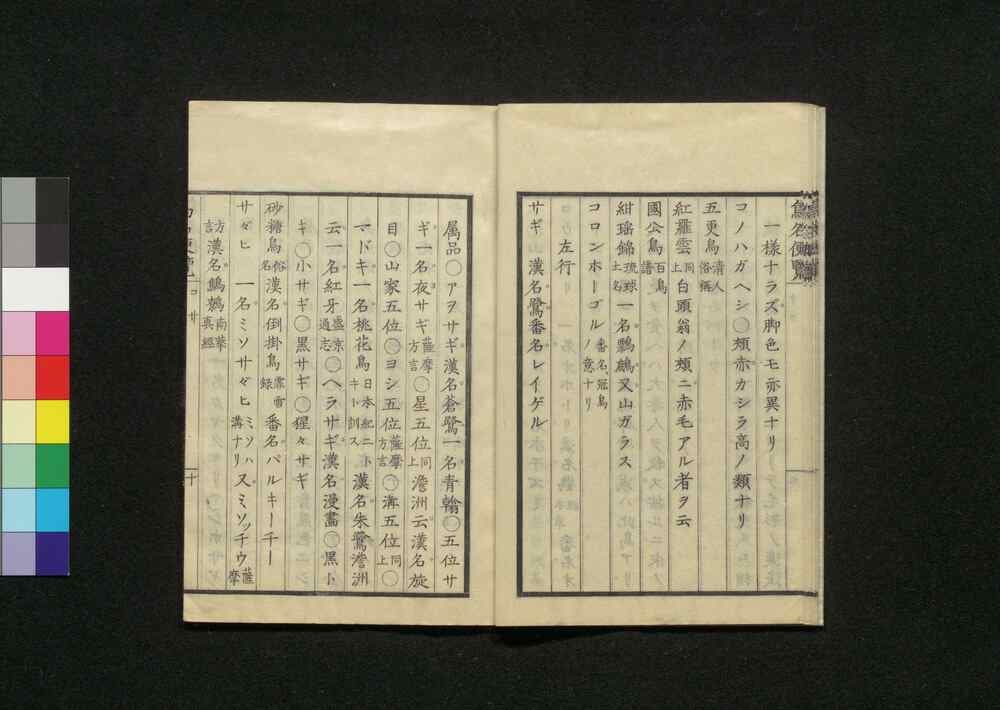 一様ナラズ脚色モ亦異ナリ
コノハガヘシ〇頬赤カシラ高ノ類ナリ
五更鳥 清人俗稱
紅羅雲 同上 白頭翁ノ頬ニ赤毛アル者ヲ云
國公鳥 百鳥譜
紺瑶錦 琉球土名 一名鸚鵡又山ガラス
コロンホーゴル 番名、冠鳥ノ意ナリ
左行
サギ 漢名鷺番名レイゲル
属品〇アヲサギ漢名蒼鷺一名青翰〇五位サ
ギ一名夜サギ 薩摩方言 〇星五位 同上 澹洲云漢名旋
目〇山家五位〇ヨシ五位 薩摩方言 〇溝五位 同上 〇
マドキ一名桃花鳥 日本紀ニトキト訓ス 漢名朱鷺澹洲
云一名紅牙 盛京通志 〇ヘラサギ漢名漫畫〇黒ト
キ〇小サギ〇黒サギ〇猩々サギ
砂糖鳥 俗名 漢名倒掛鳥 番名パルキーチー
サヾヒ 一名ミソサヾヒ ミソハ溝ナリ 又ミソッチウ 薩摩
方言 漢名鷦鷯 南華真經